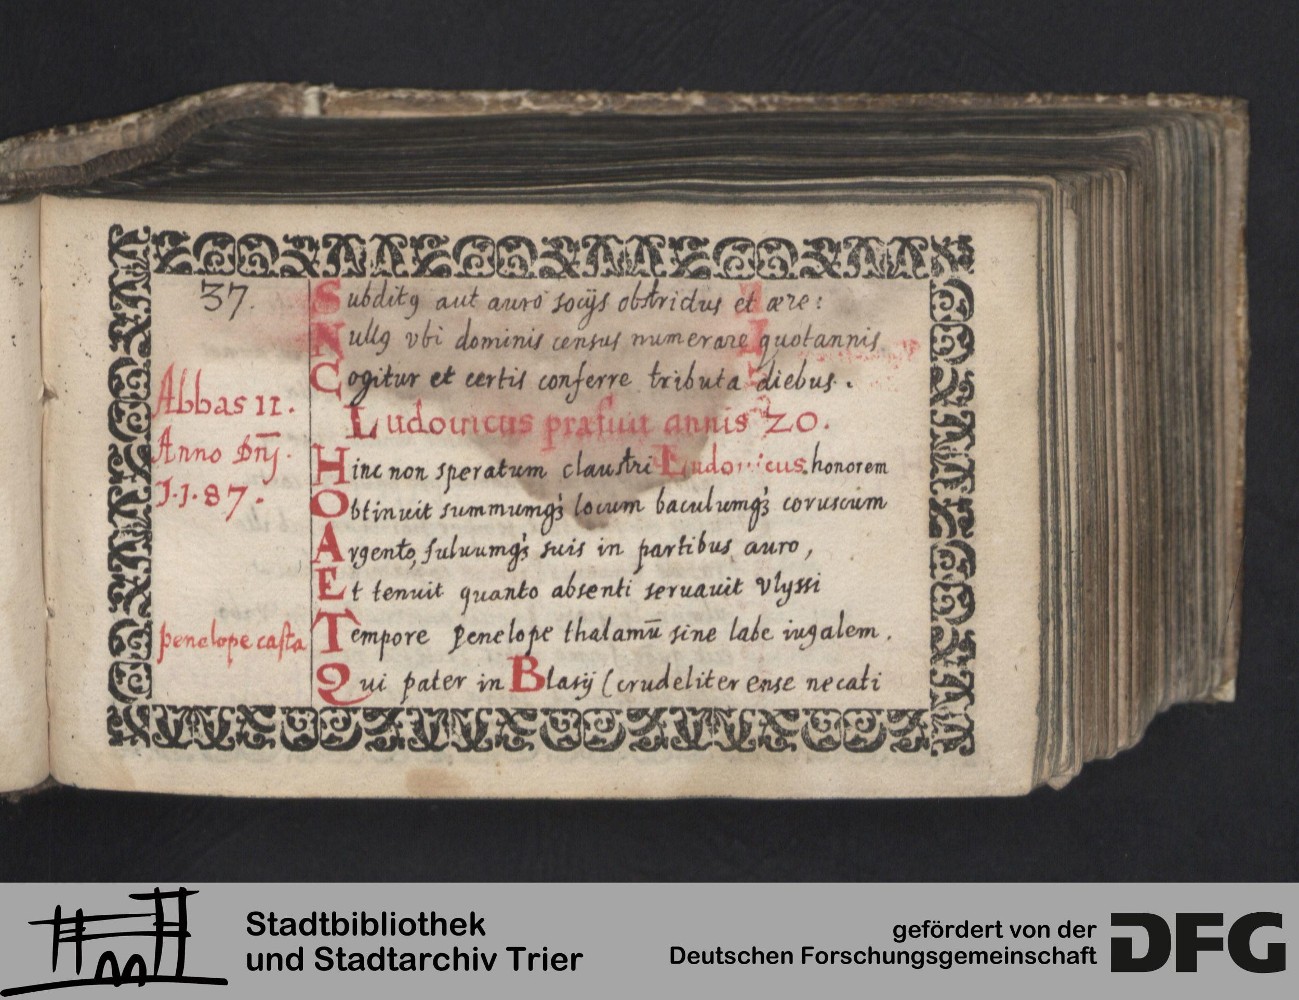 37.
Subditꝯ aut auro socijs obstridus et ære:
Nullꝯ vbi dominis census numerare quotannis
Cogitur et certis conferre tributa diebus.
Abbas 11.
Anno Dnj.
1.1.87.
Ludouicus præfuit annis 20.
Hinc non speratum claustri Ludouicus honorem
Obtinuit summumqꝫ locum baculumqꝫ coruscum
Argento, fuluumqꝫ suis in partibus auro,
Et tenuit quanto absenti seruauit Vlyssi
penelope casta
Tempore penelope thalamū sine labe iugalem.
Qui pater in Blasij (crudeliter ense necati
Stadtbibliothek
und Stadtarchiv Trier
gefördert von der
Deutschen Forschungsgemeinschaft
DFG